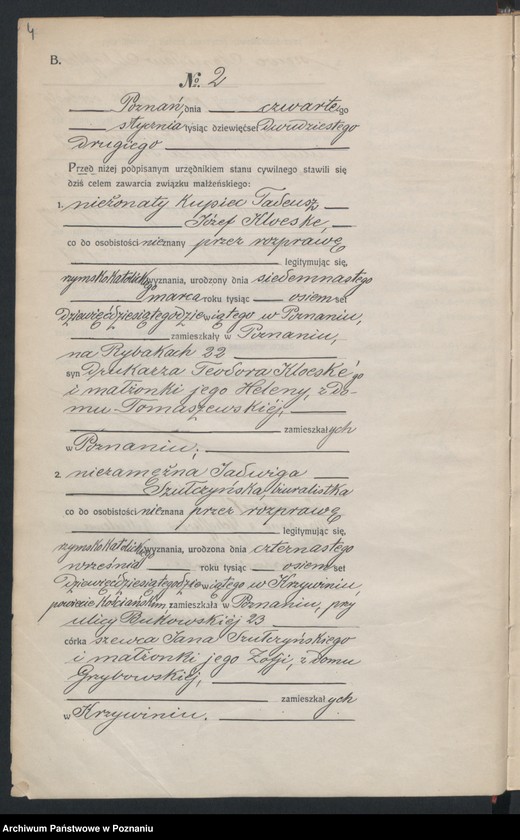 4
B.
No. 2
Poznań, dnia czwartego
stycznia tysiąc dziewięćset Dwudziestego
drugiego
Przed niżej podpisanym urzędnikiem stanu cywilnego stawili się
dziś celem zawarcia związku małżeńskiego:
1. nieżonaty Kupiec Tadeusz
Józef Kloeske,
co do osobistości nieznany przez rozprawę
legitymując się,
rzymskokatolickiego wyznania, urodzony dnia siedemnastego
marca roku tysiąc osiemset
dziewięćdziesiątego dziewiątego w Poznaniu,
zamieszkały w Poznaniu,
na Rybakach 22
syn Drukarza Teodora Kloeske'go
i małżonki jego Heleny, z do-
mu Tomaszewskiéj,
zamieszkałych
w Poznaniu;
2. niezamężna Jadwiga
Szulczyńska, biuralistka
co do osobistości nieznana przez rozprawę
legitymując się,
rzymskokatolickiego wyznania, urodzona dnia czternastego
września roku tysiąc osiemset
Dziewięćdziesiątego dziewiątego w Krzywiniu,
powiecie Kościańskim, zamieszkała w Poznaniu, przy
ulicy Bukowskiéj 23
córka szewca Jana Szulczyńskiego
i małżonki jego Zofji, z domu
Grzybowskiéj,
zamieszkałych
w Krzywiniu.
Archiwum Państwowe w Poznaniu